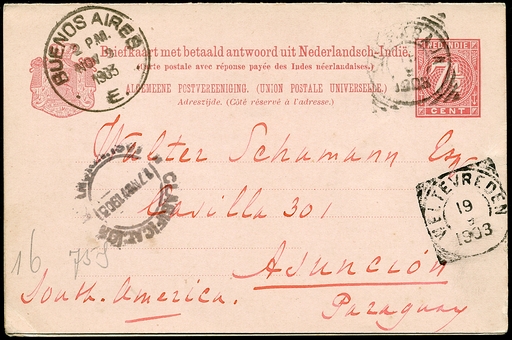 BUENOS AIRES
2 P.M.
NOV
1903
E
Briefkaart met betaald antwoord uit Nederlandsch-Indië.
(Carte postale avec réponse payée des Indes néerlandaises.)
ALGEMEENE POSTVEREENIGING. (UNION POSTALE UNIVERSELLE.)
Adreszijde. (Côté réservé à l'adresse.)
NED-INDIE
7½
CENT
1903
Walter Schumann Esq
301
Asunción
South-America.
Paraguay
CLASIFICACION
WELTEVREDEN
19
1903
16
755